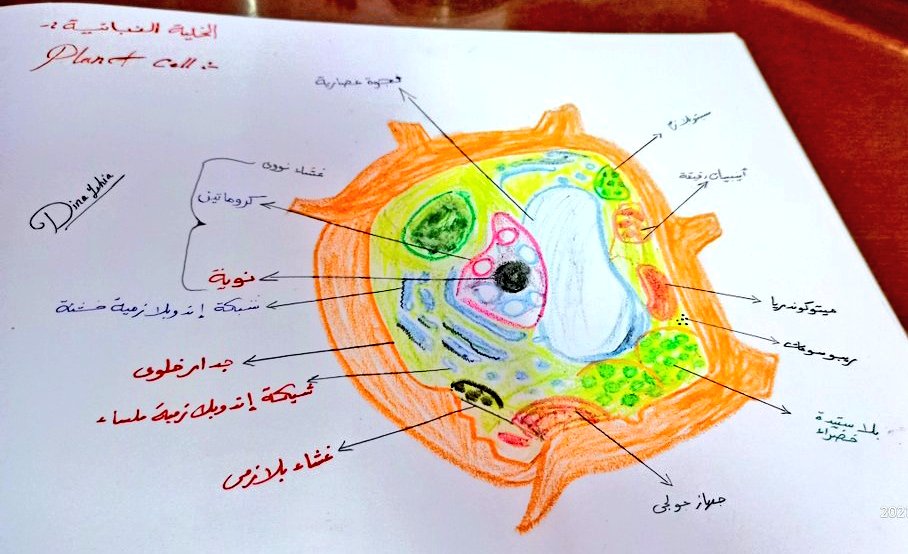 الخلية النباتية :-
Plant cell :-
فجوة عصارية
سيتوبلازم
أنيبيبات دقيقة
Dina Yehia
غشاء نووى
كروماتين
نوية
شبكة إندوبلازمية خشنة
جدار خلوى
شبكة إندوبلازمية ملساء
غشاء بلازمى
ميتوكوندريا
ريبوسومات
بلاستيدة
خضراء
جهاز جولجى
2021